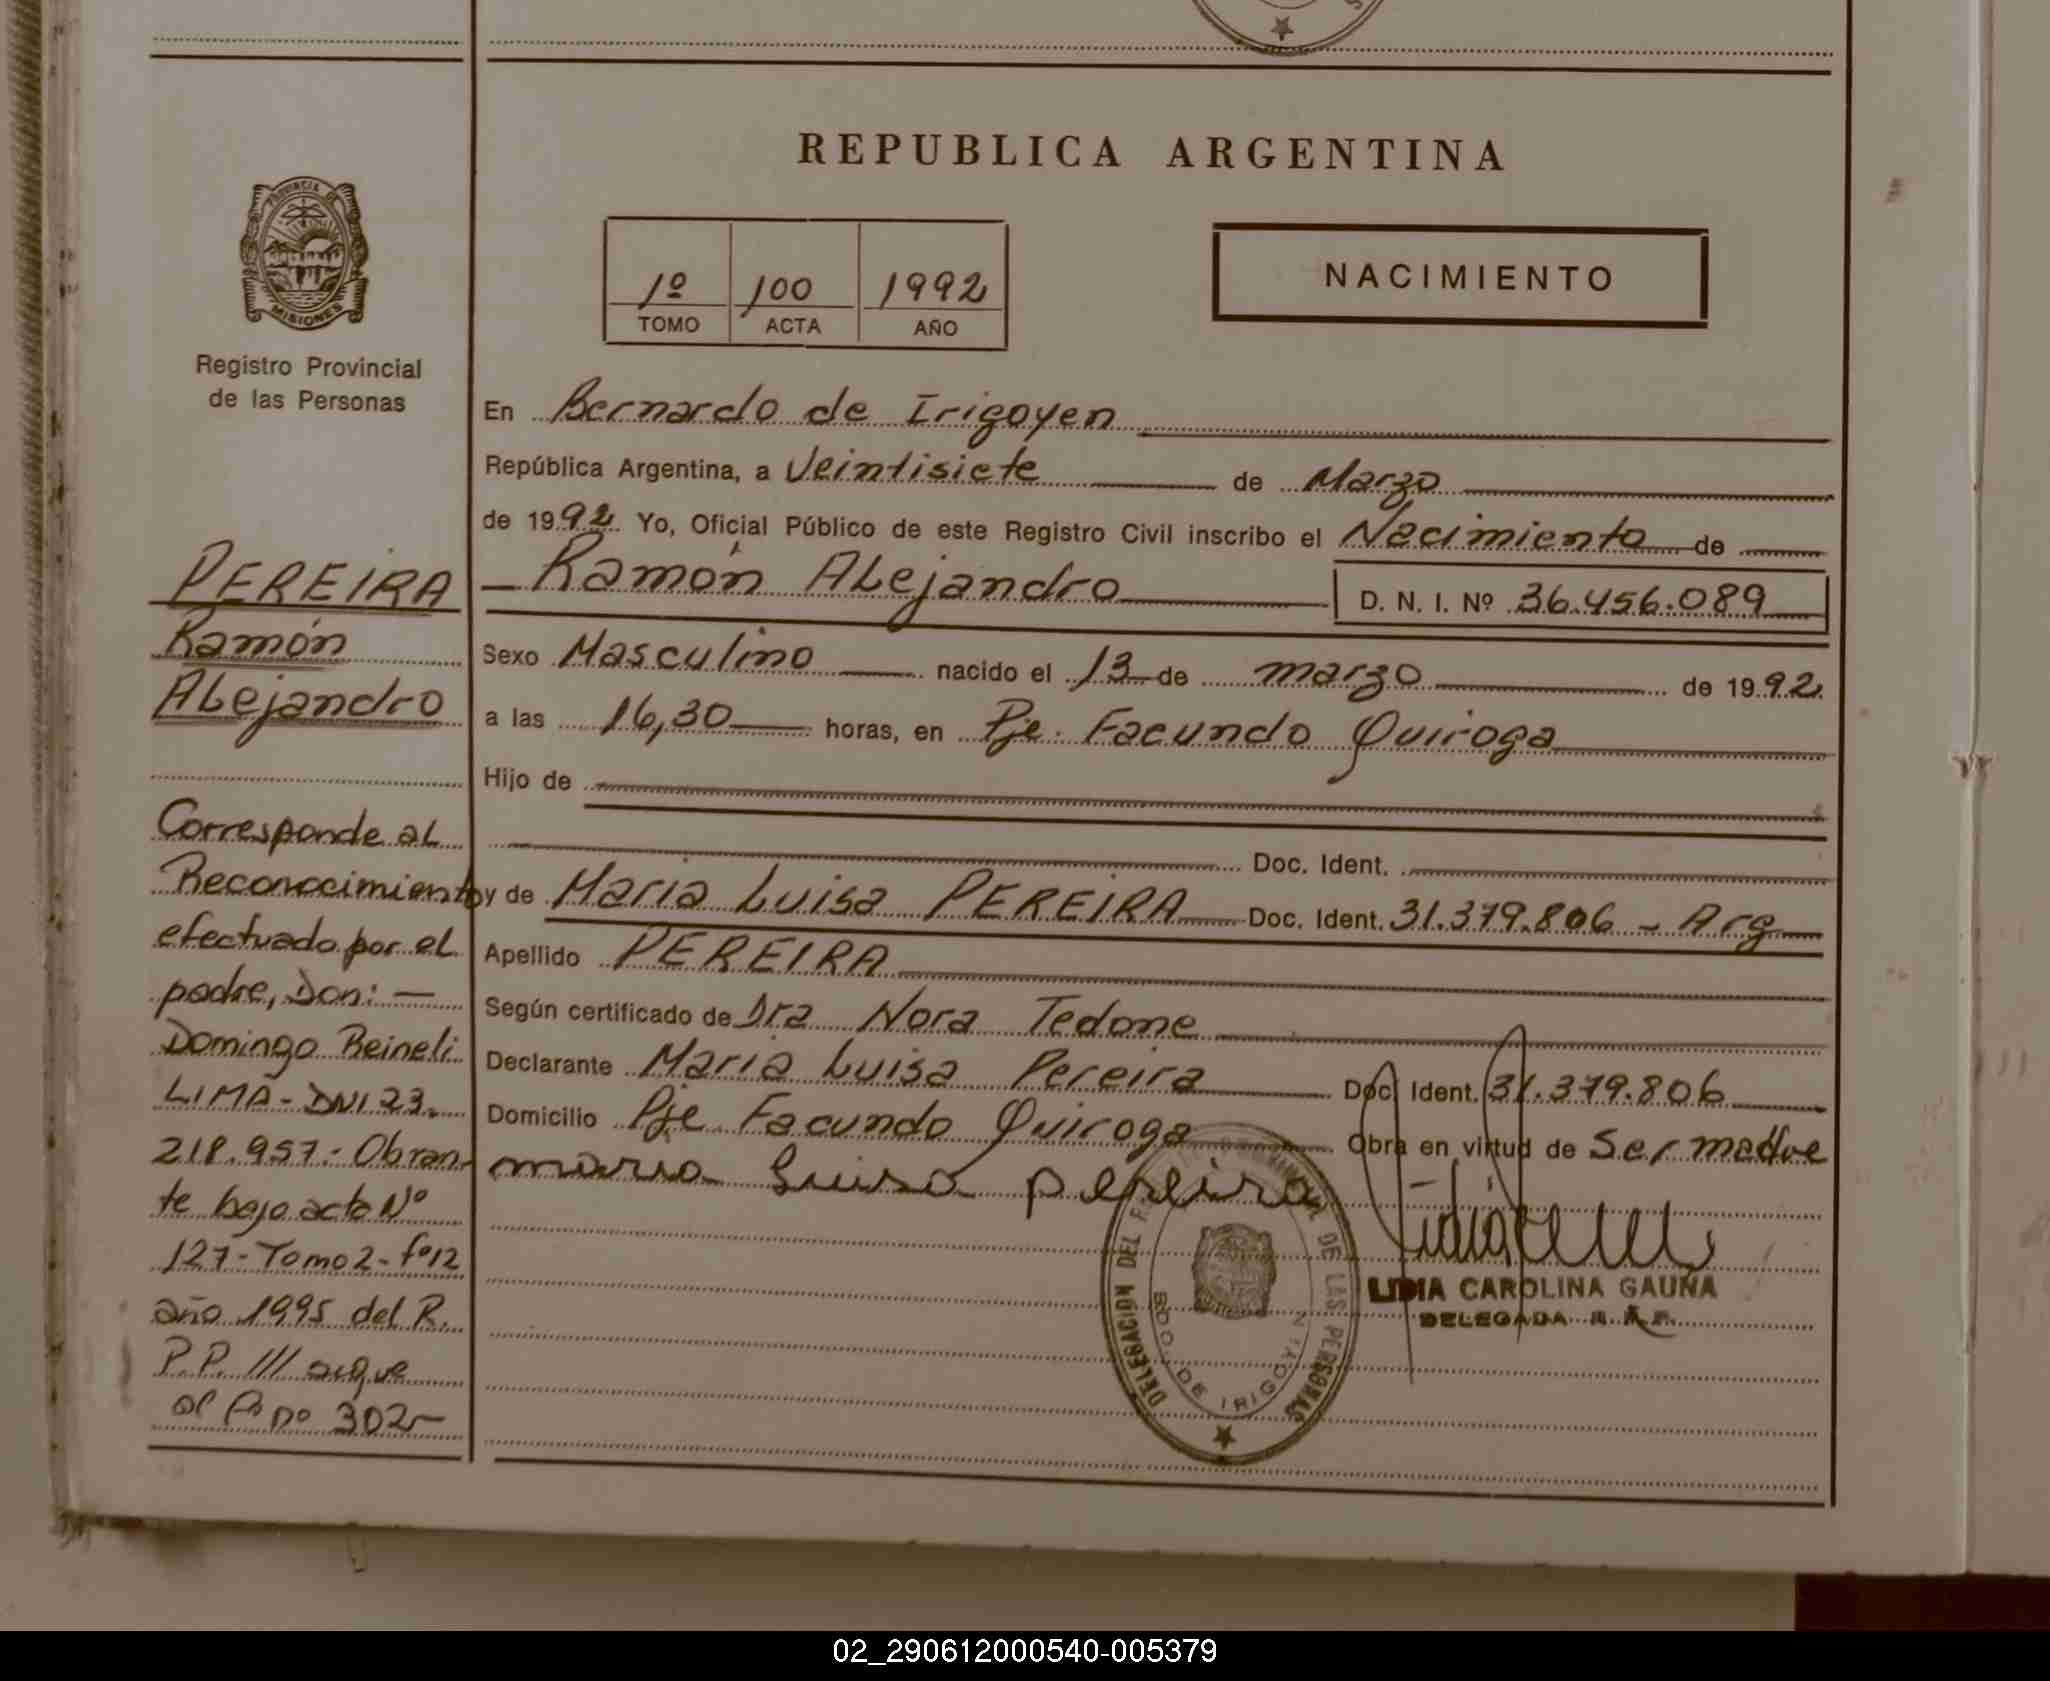 REPUBLICA ARGENTINA
PROVINCIA DE
MISIONES
Registro Provincial
de las Personas
1º 100 1992
TOMO ACTA AÑO
NACIMIENTO
En Bernardo de Irigoyen
República Argentina, a Veintisiete de Marzo
de 1992 Yo, Oficial Público de este Registro Civil inscribo el Nacimiento de
Ramón Alejandro D. N. I. Nº 36.456.089
Sexo Masculino nacido el 13 de marzo de 1992
a las 16,30 horas, en Pje. Facundo Quiroga
Hijo de
Doc. Ident.
y de Maria Luisa PEREIRA Doc. Ident. 31.379.806 - Arg
Apellido PEREIRA
Según certificado de Dra Nora Tedone
Declarante Maria Luisa Pereira Doc. Ident. 31.379.806
Domicilio Pje Facundo Quiroga Obra en virtud de Ser madre
maria luisa pereira
DELEGACION DEL DE LAS PERSONAS
BDO. DE IRIGOYEN
LIDIA CAROLINA GAUNA
DELEGADA R.
PEREIRA
Ramón
Alejandro
Corresponde al
Reconocimiento
efectuado por el
padre, Don: —
Domingo Reineli
LIMA - DNI 23.
218.957.- Obran-
te bajo acta Nº
127 - Tomo 2 - fº 12
año 1995 del R.
P.P. /// sigue
al Fº nº 302
02_290612000540-005379